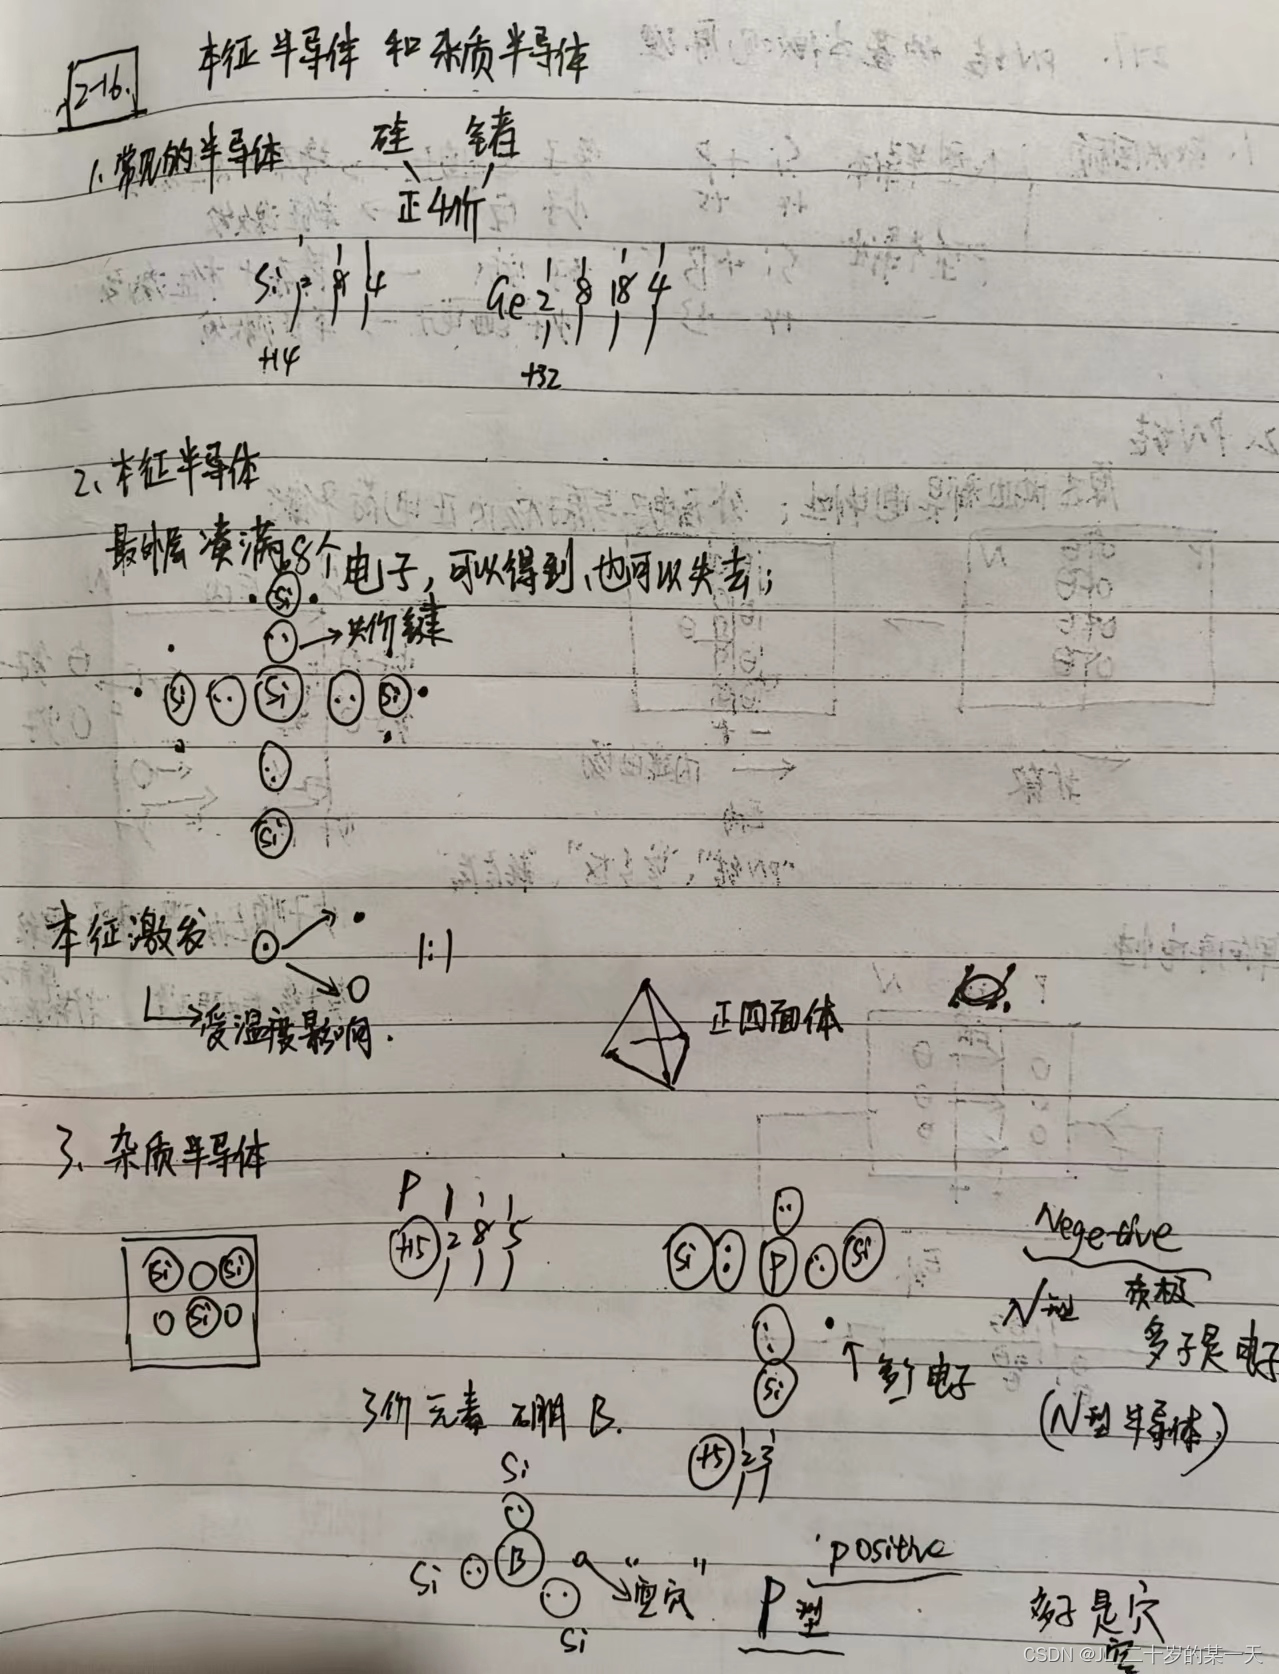 2-16.
本征半导体 和 杂质半导体
1、常见的半导体 硅 锗
正4价
Si 2 8 4 Ge 2 8 18 4
+14 +32
2、本征半导体
最外层凑满8个电子，可以得到、也可以失去；
Si
共价键
Si Si Si
Si
本征激发 1:1
受温度影响.
正四面体
3、杂质半导体
P
+15 2 8 5
Si Si
Si
Si P Si
Si
多个电子
Negetive
N型 负极
多子是电子
(N型半导体)
3价元素 硼 B.
+5 2 3
Si
Si B "空穴"
Si
positive
P型
多子是穴
空
CSDN @J二十岁的某一天